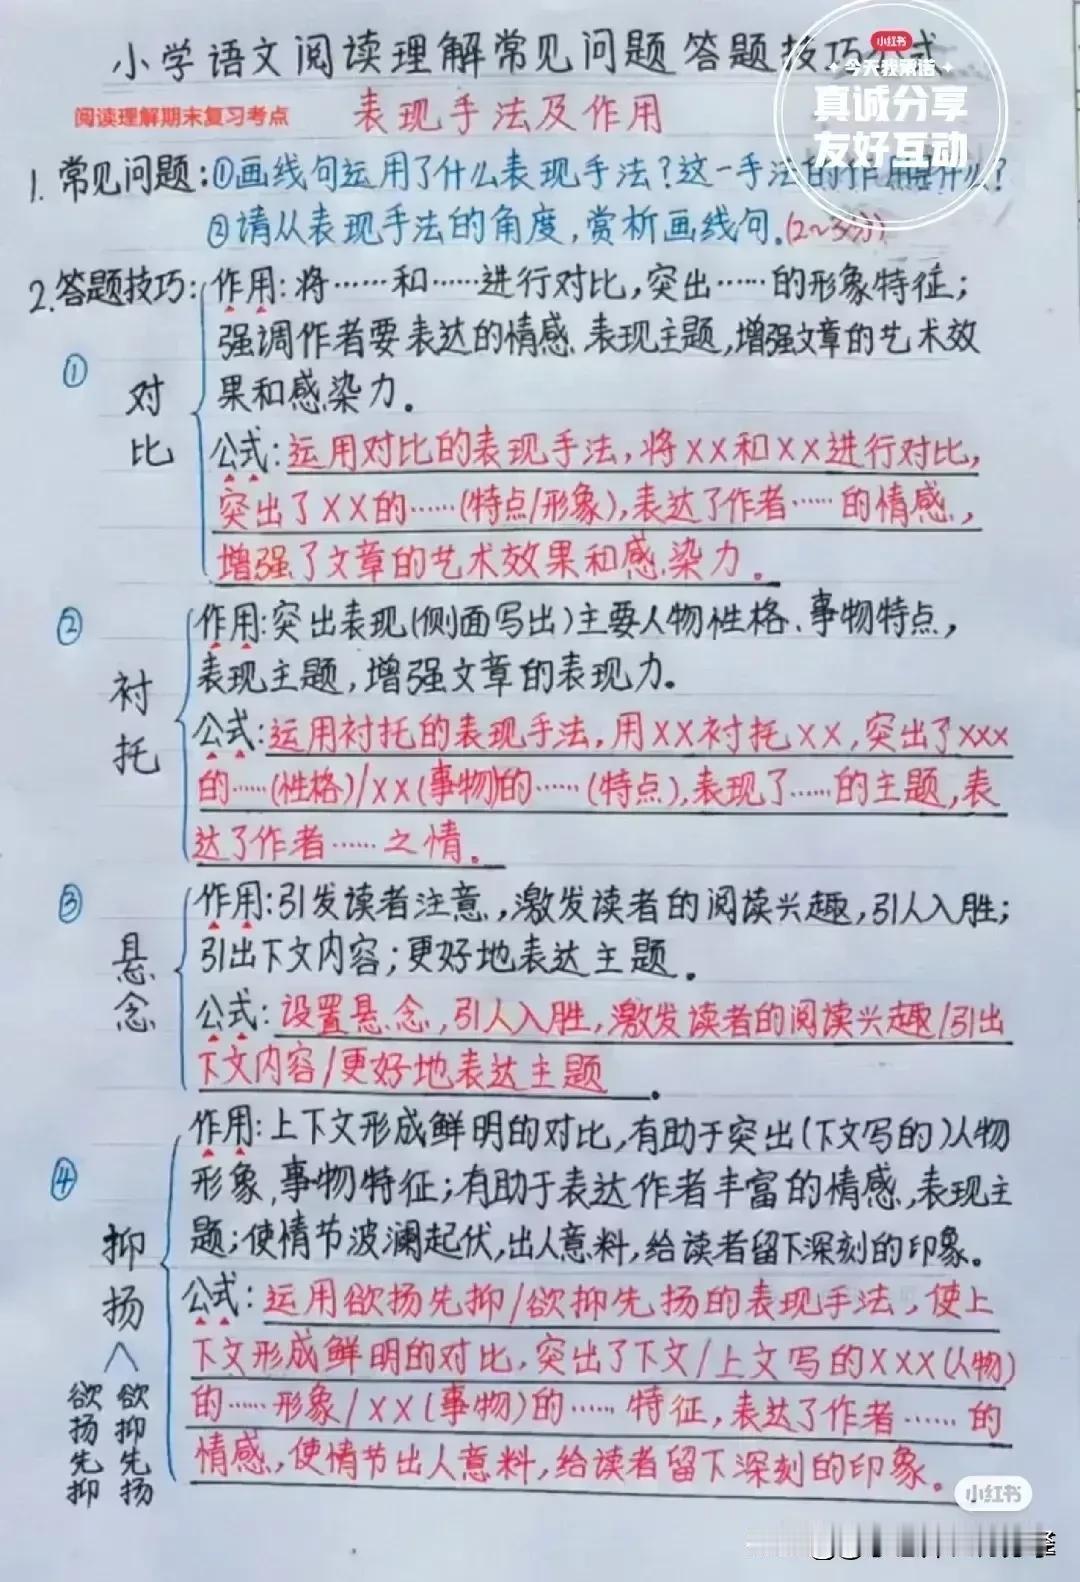 小学语文阅读理解常见问题答题技巧公式
小红书
今天我承诺
真诚分享
友好互动
阅读理解期末复习考点
表现手法及作用
1. 常见问题:①画线句运用了什么表现手法?这一手法的作用是什么?
②请从表现手法的角度,赏析画线句。(2~3分)
2. 答题技巧:
① 对比
作用:将……和……进行对比,突出……的形象特征;
强调作者要表达的情感、表现主题,增强文章的艺术效
果和感染力。
公式:运用对比的表现手法,将XX和XX进行对比,
突出了XX的……(特点/形象),表达了作者……的情感,
增强了文章的艺术效果和感染力。
② 衬托
作用:突出表现(侧面写出)主要人物性格、事物特点,
表现主题,增强文章的表现力。
公式:运用衬托的表现手法,用XX衬托XX,突出了XXX
的……(性格)/XX(事物)的……(特点),表现了……的主题,表
达了作者……之情。
③ 悬念
作用:引发读者注意,激发读者的阅读兴趣,引人入胜;
引出下文内容;更好地表达主题。
公式:设置悬念,引人入胜,激发读者的阅读兴趣/引出
下文内容/更好地表达主题。
④ 抑扬
欲扬先抑
欲抑先扬
作用:上下文形成鲜明的对比,有助于突出(下文写的)人物
形象,事物特征;有助于表达作者丰富的情感,表现主
题;使情节波澜起伏,出人意料,给读者留下深刻的印象。
公式:运用欲扬先抑/欲抑先扬的表现手法,使上
下文形成鲜明的对比,突出了下文/上文写的XXX(人物)
的……形象/XX(事物)的……特征,表达了作者……的
情感,使情节出人意料,给读者留下深刻的印象。
小红书